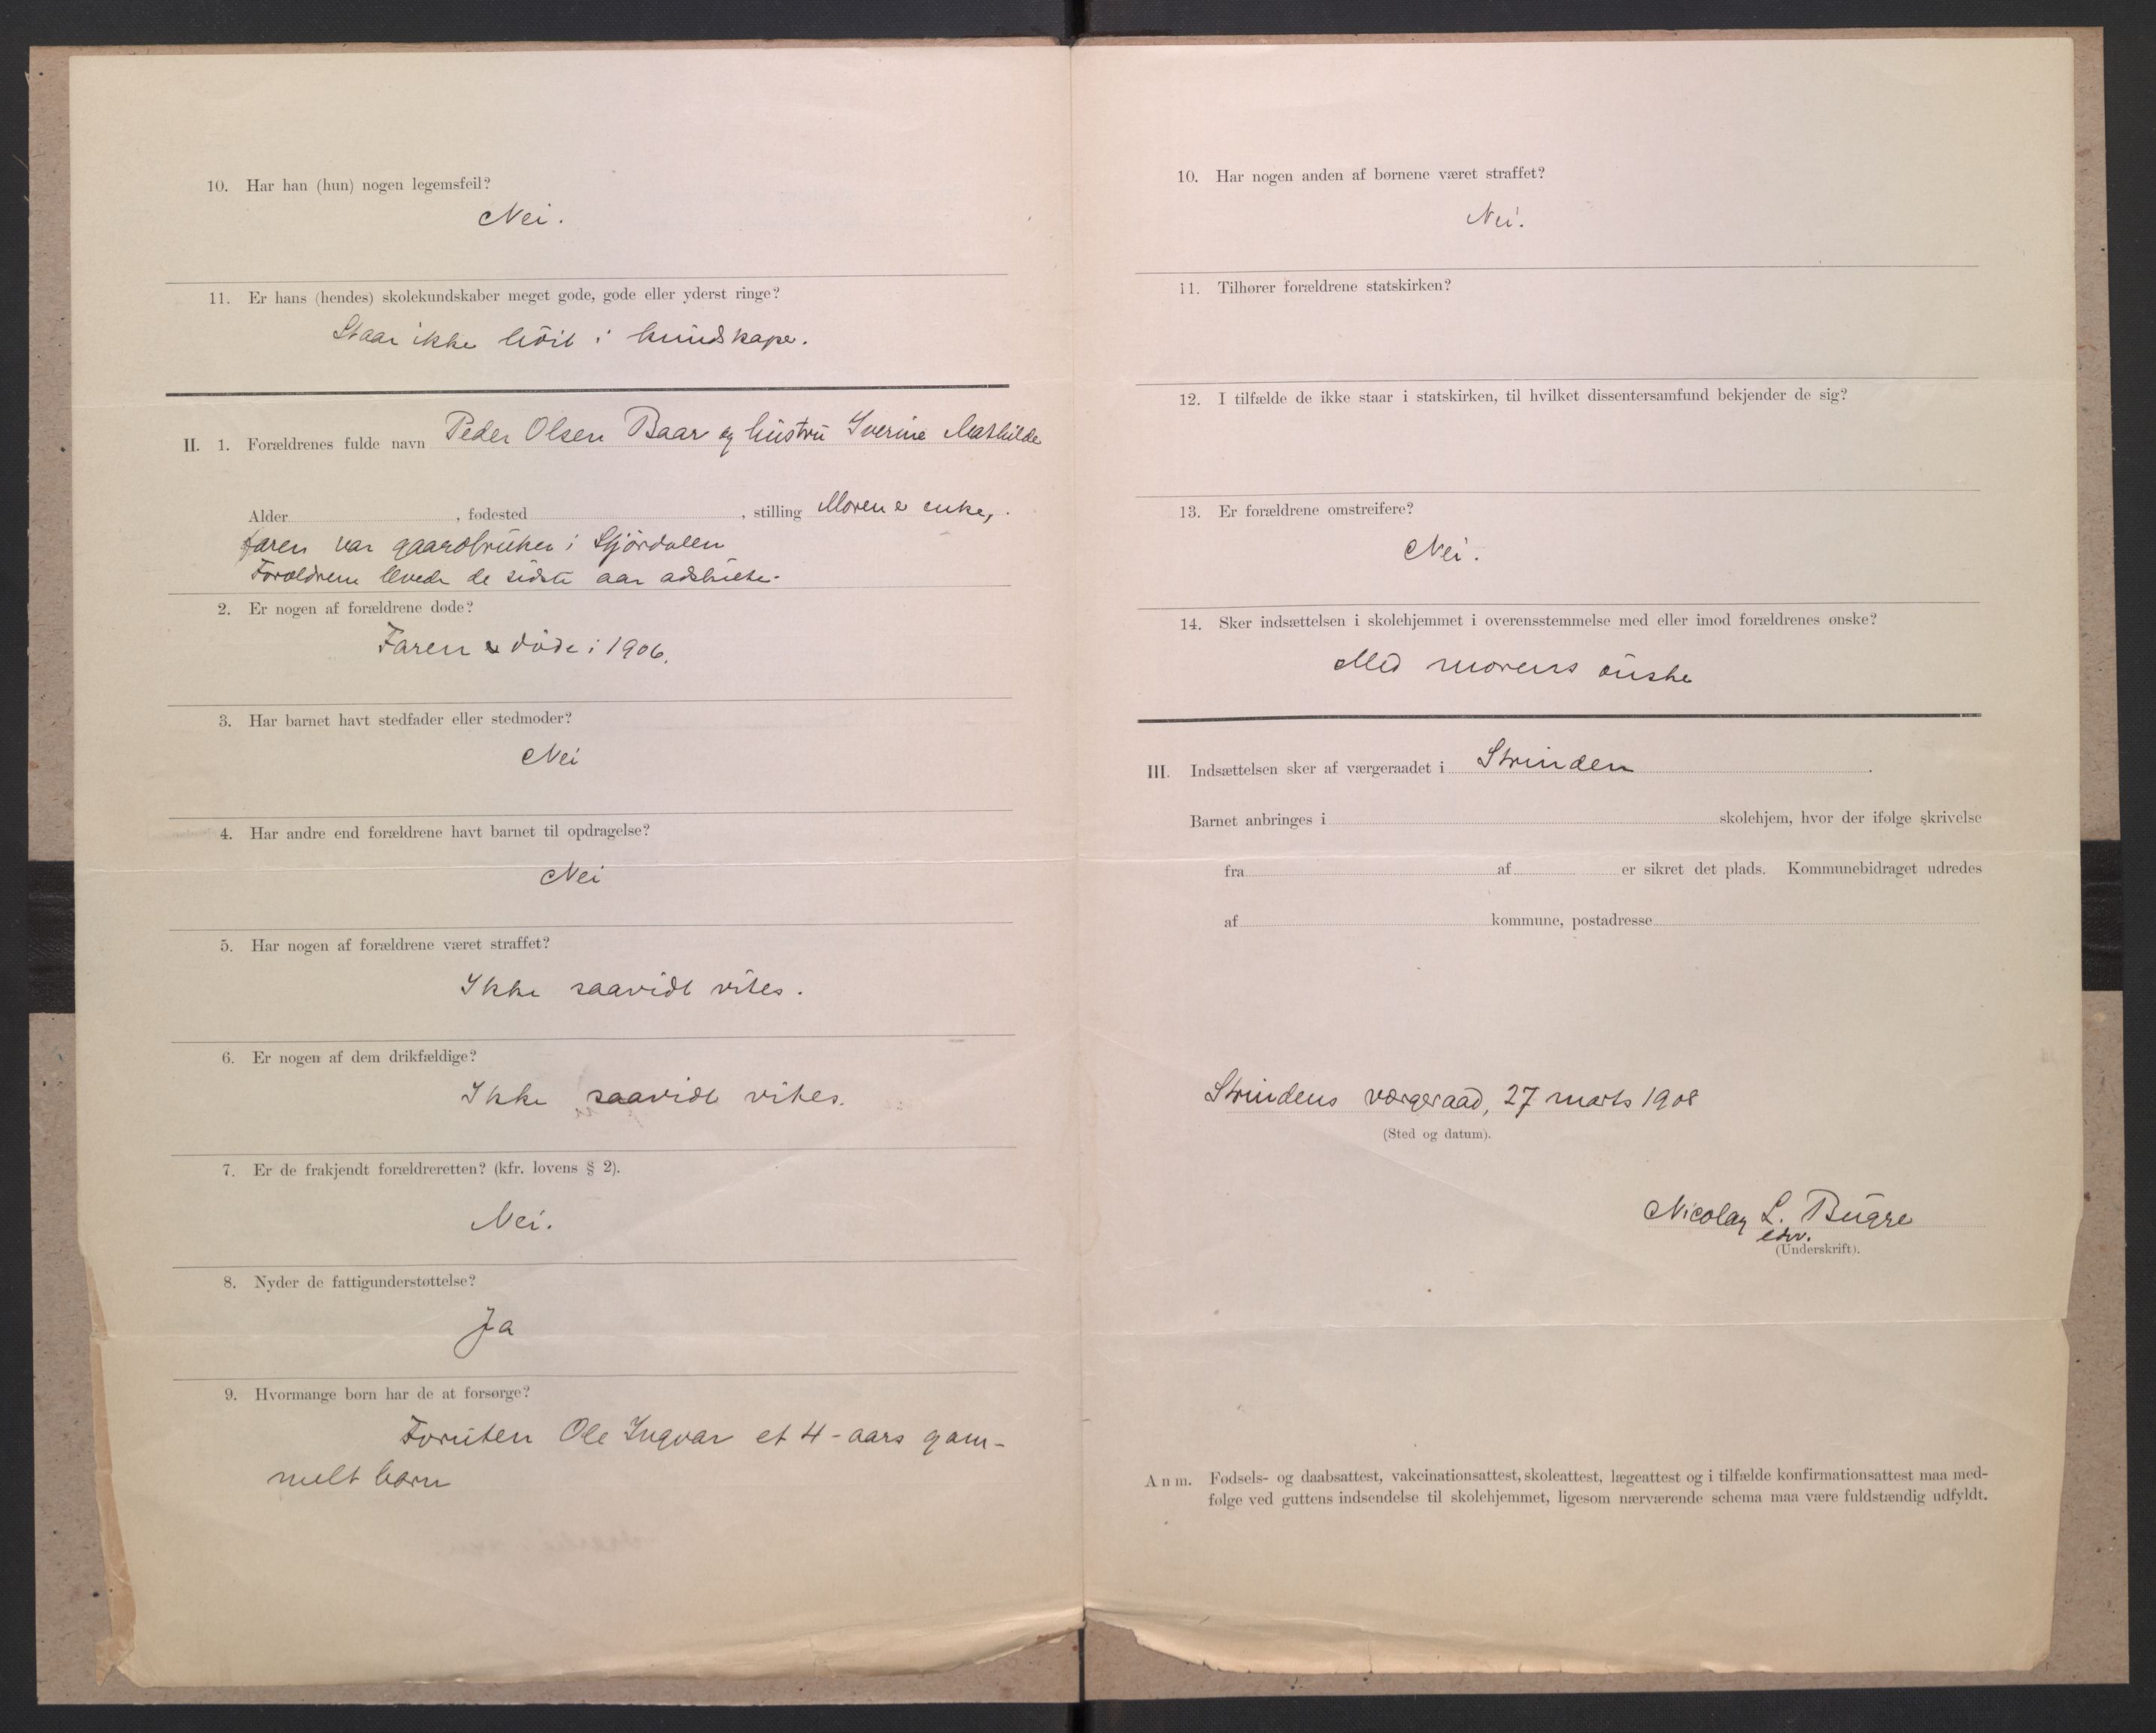 10. Har han (hun) nogen legemsfeil?
Nei.
11. Er hans (hendes) skolekundskaber meget gode, gode eller yderst ringe?
Staar ikke höit i kundskaper.
II. 1. Forældrenes fulde navn Peder Olsen Baar og hustru Iverine Mathilde
Alder , fødested , stilling Moren er enke,
faren var gaardbruker i Stjördalen
Forældrene levede de sidste aar adskilte.
2. Er nogen af forældrene døde?
Faren döde i 1906.
3. Har barnet havt stedfader eller stedmoder?
Nei
4. Har andre end forældrene havt barnet til opdragelse?
Nei
5. Har nogen af forældrene været straffet?
Ikke saavidt vites.
6. Er nogen af dem drikfældige?
Ikke saavidt vites.
7. Er de frakjendt forældreretten? (kfr. lovens § 2).
Nei.
8. Nyder de fattigunderstøttelse?
Ja
9. Hvormange børn har de at forsørge?
Foruten Ole Ingvar et 4-aars gam-
melt barn
10. Har nogen anden af børnene været straffet?
Nei.
11. Tilhører forældrene statskirken?
12. I tilfælde de ikke staar i statskirken, til hvilket dissentersamfund bekjender de sig?
13. Er forældrene omstreifere?
Nei.
14. Sker indsættelsen i skolehjemmet i overensstemmelse med eller imod forældrenes ønske?
Med morens önske
III. Indsættelsen sker af værgeraadet i Strinden.
Barnet anbringes i skolehjem, hvor der ifølge skrivelse
fra af er sikret det plads. Kommunebidraget udredes
af kommune, postadresse
Strindens værgeraad, 27 marts 1908
(Sted og datum).
Nicolay L. Bugge
(Underskrift).
Anm. Fødsels- og daabsattest, vakcinationsattest, skoleattest, lægeattest og i tilfælde konfirmationsattest maa med-
følge ved guttens indsendelse til skolehjemmet, ligesom nærværende schema maa være fuldstændig udfyldt.